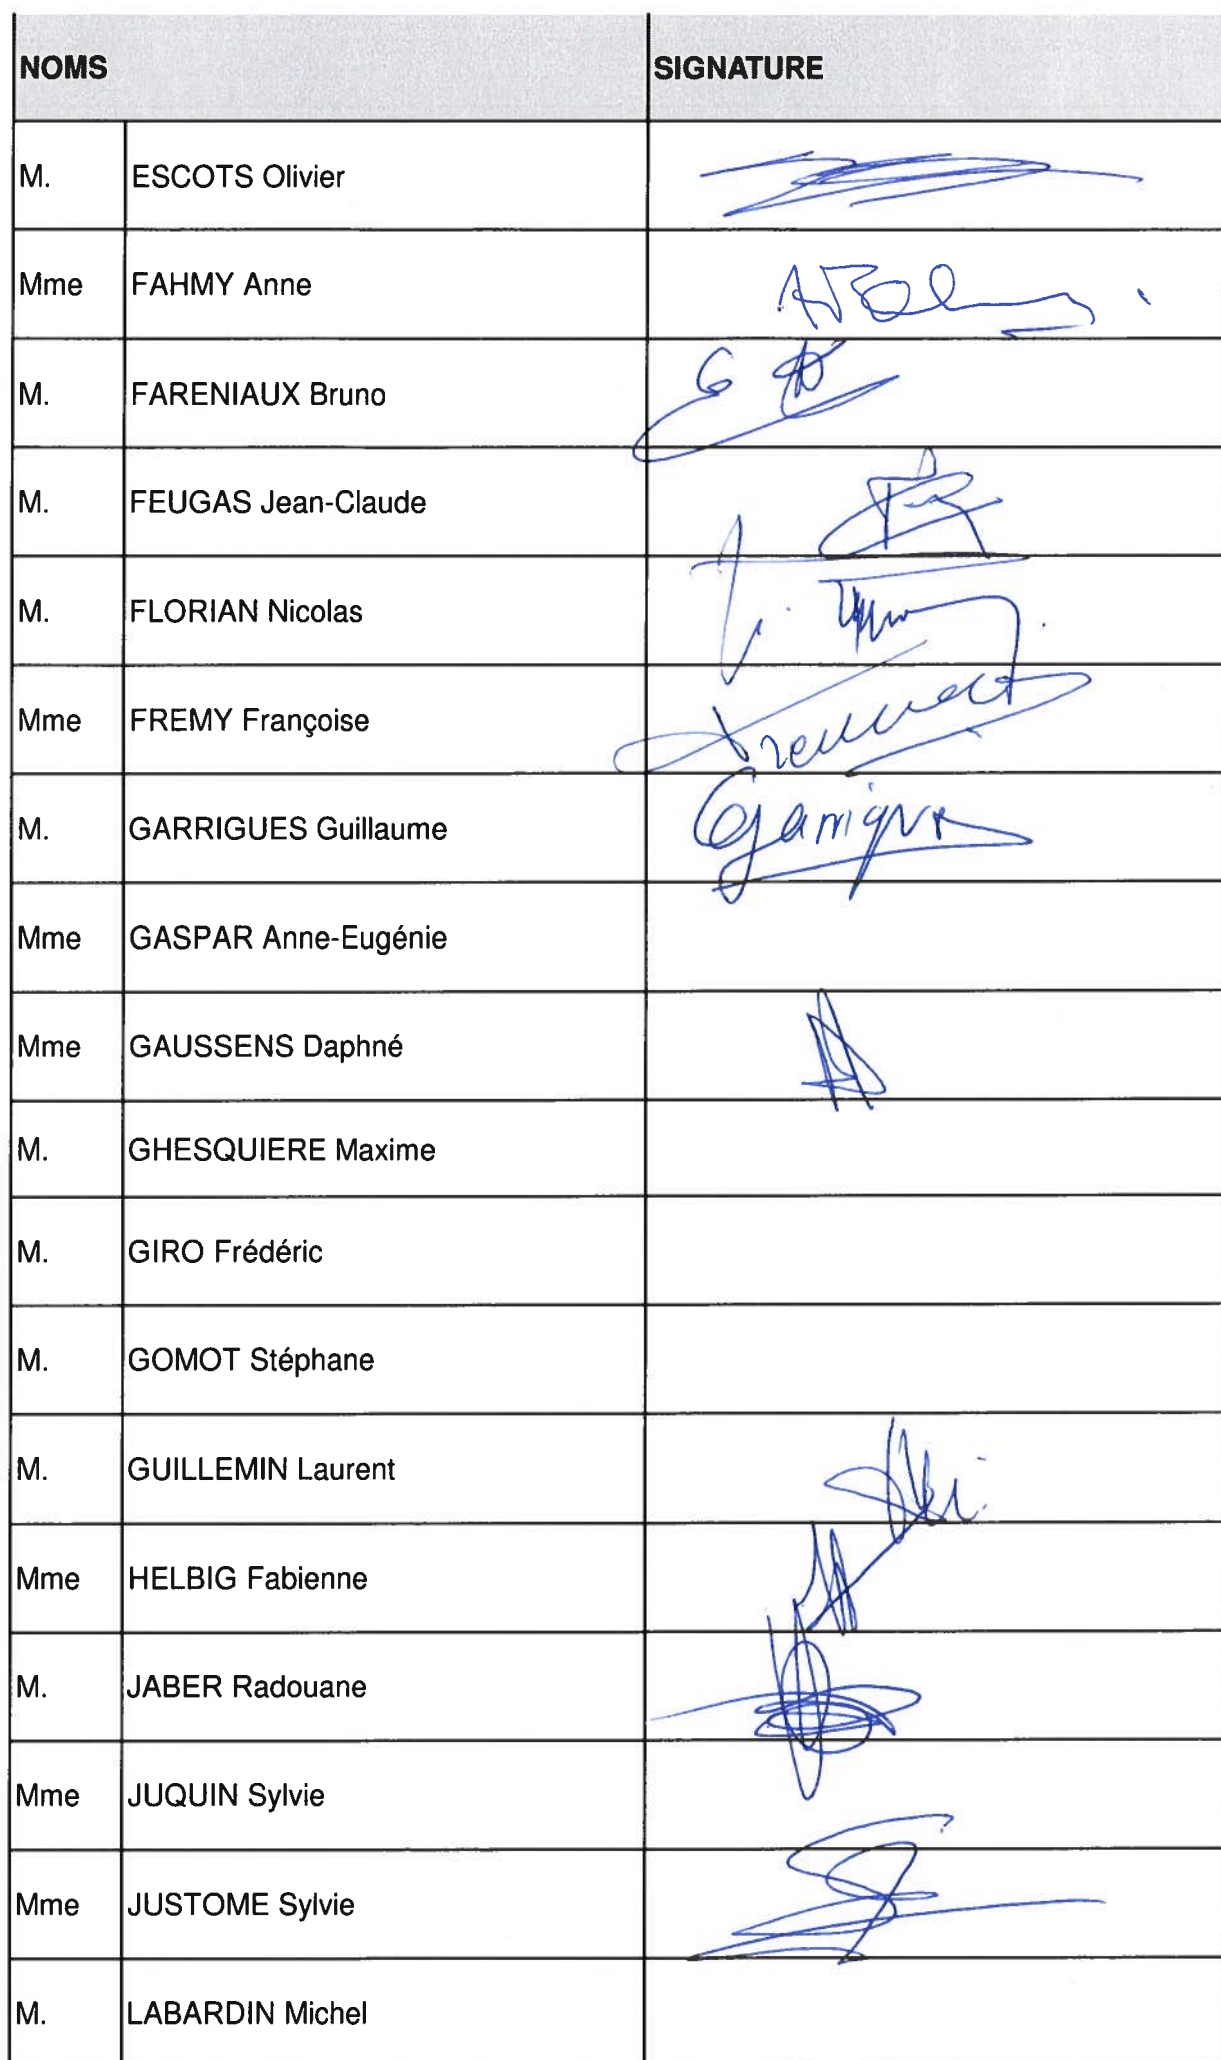 NOMS SIGNATURE
M. ESCOTS Olivier
Mme FAHMY Anne
M. FARENIAUX Bruno
M. FEUGAS Jean-Claude
M. FLORIAN Nicolas
Mme FREMY Françoise
M. GARRIGUES Guillaume
Mme GASPAR Anne-Eugénie
Mme GAUSSENS Daphné
M. GHESQUIERE Maxime
M. GIRO Frédéric
M. GOMOT Stéphane
M. GUILLEMIN Laurent
Mme HELBIG Fabienne
M. JABER Radouane
Mme JUQUIN Sylvie
Mme JUSTOME Sylvie
M. LABARDIN Michel